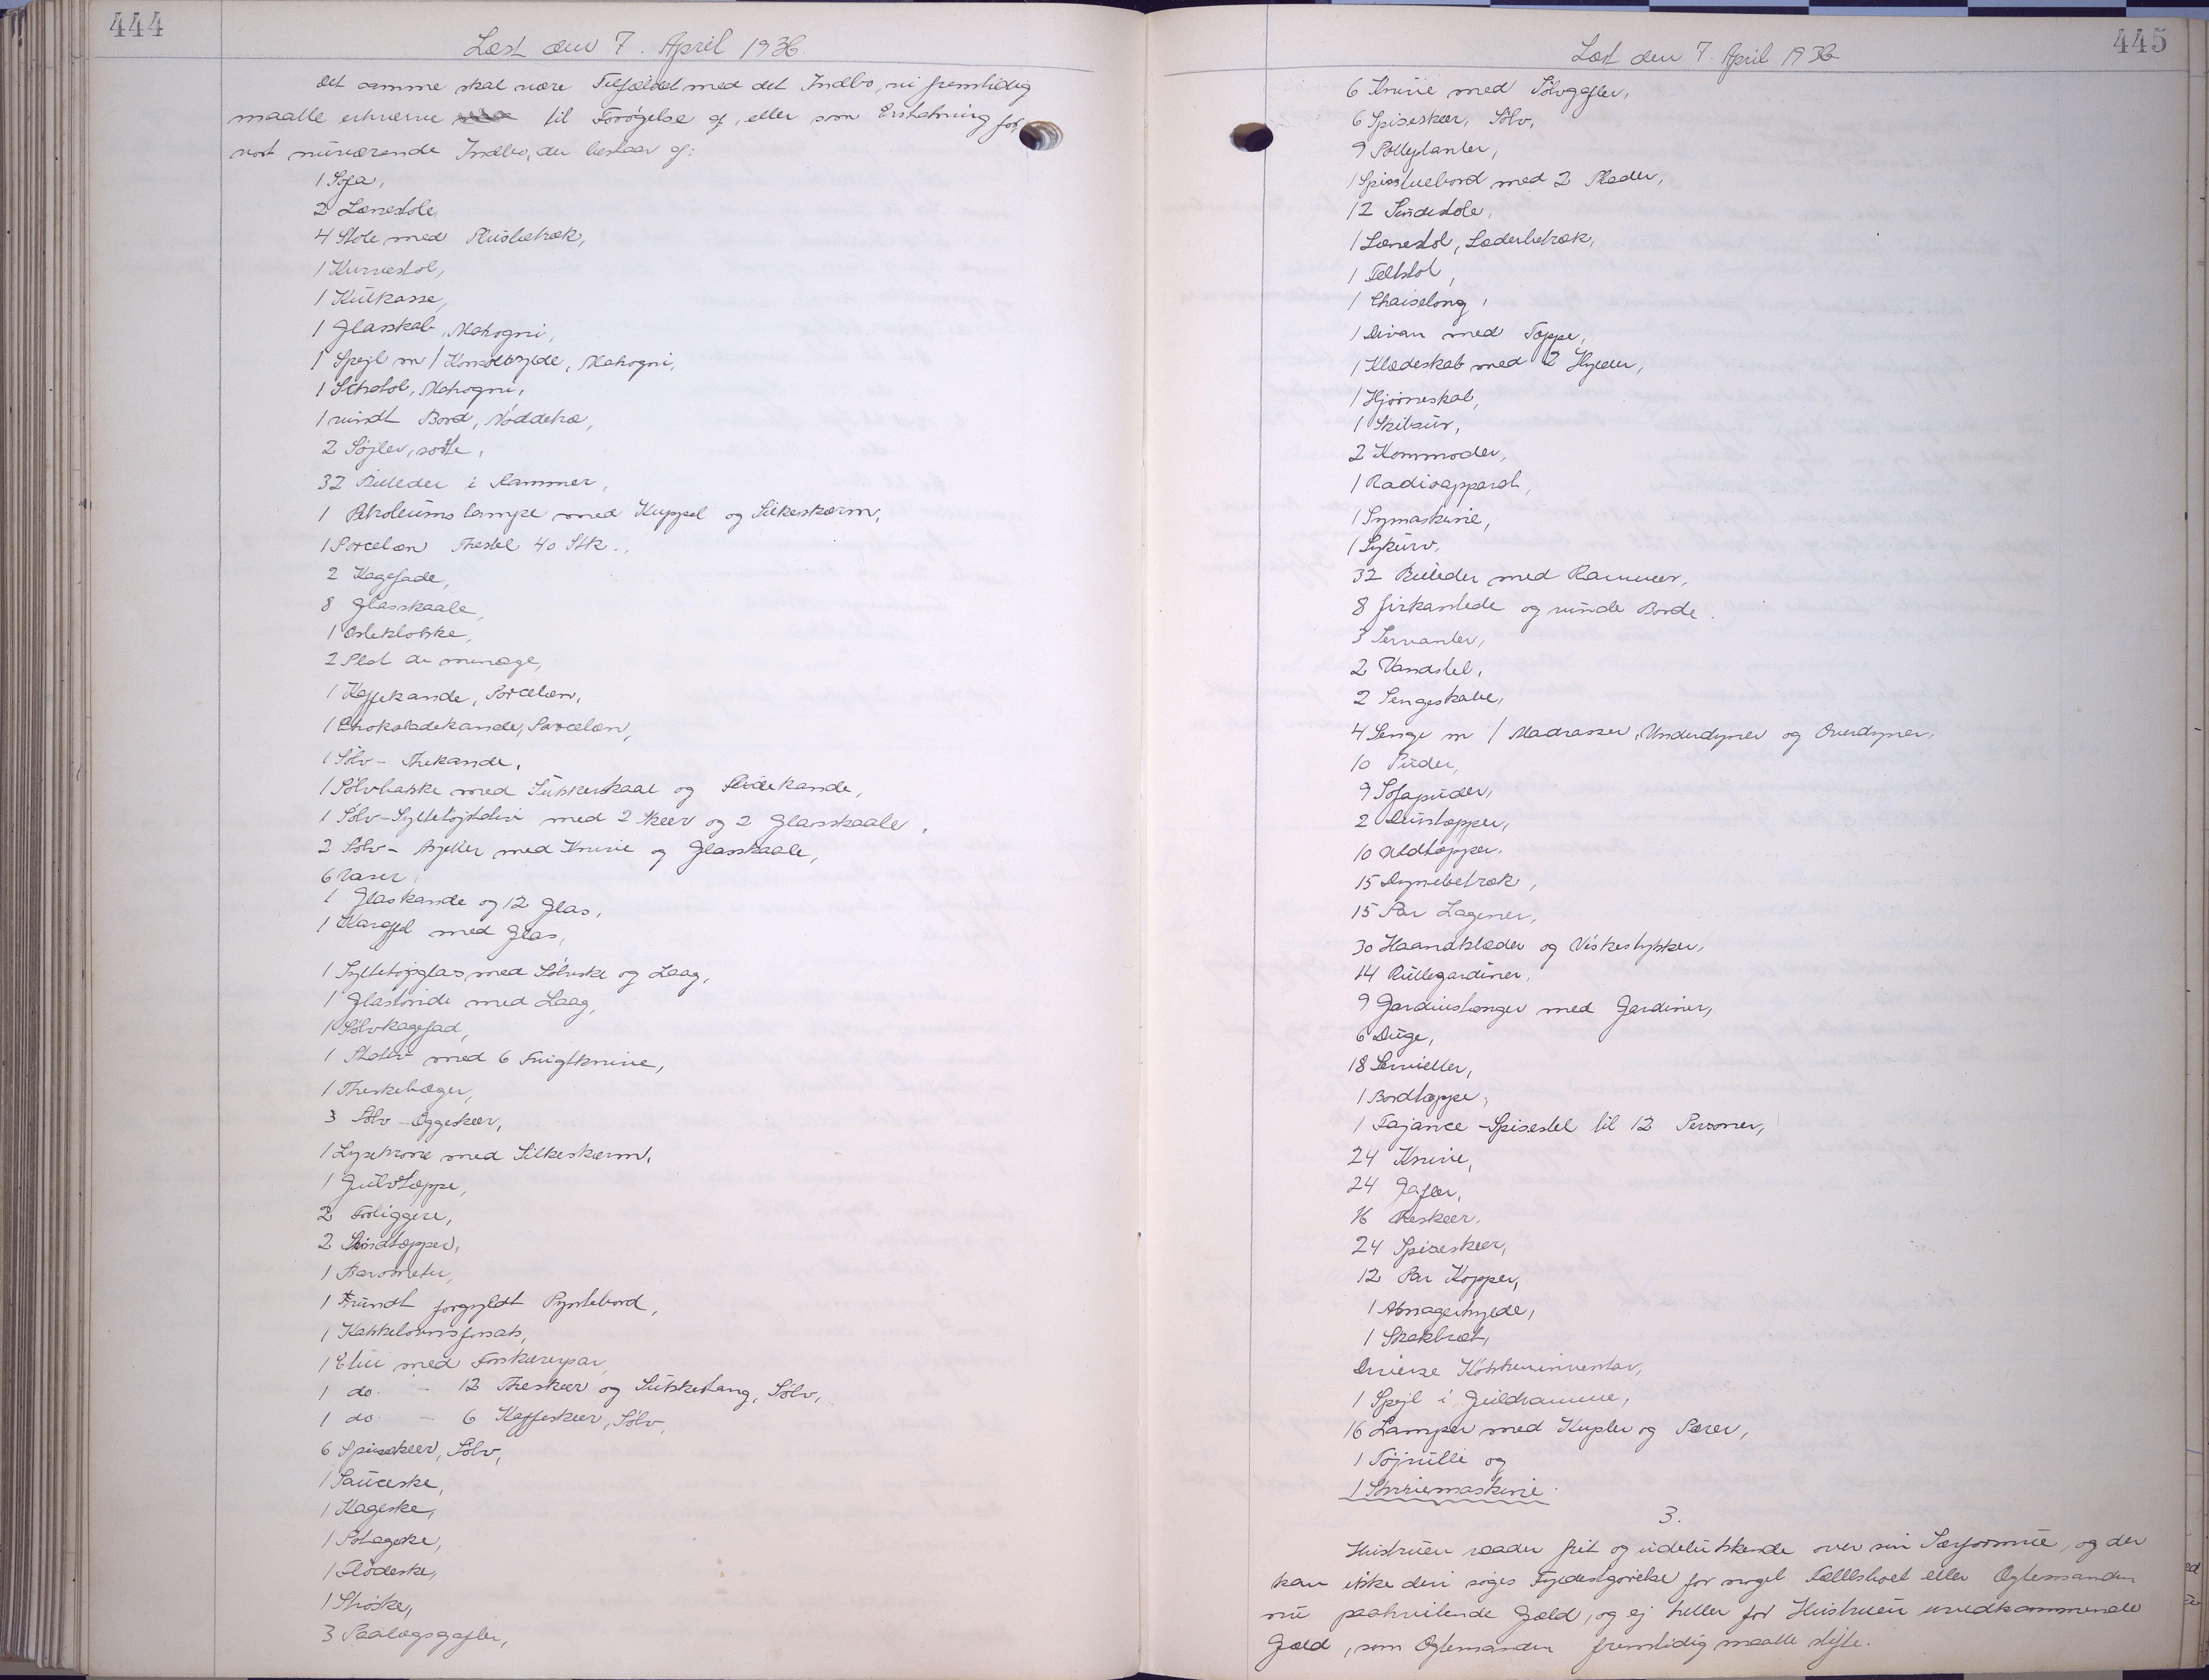 444
Læst den 7. April 1936.
Det samme skal være Tilfældet med det Indbo, vi fremtidig
maatte erhverve til Forøgelse af, eller som Erstatning for,
vort nuværende Indbo, der bestaar af:
1 Sofa,
2 Lænestole,
4 Stole med Plusbetræk,
1 Kurvestol,
1 Kulkasse,
1 Glasskab, Mahogni,
1 Spejl m/Konsolhylde, Mahogni,
1 Sybord, Mahogni,
1 rundt Bord, Nøddetræ,
2 Søjler, sorte,
32 Billeder i Rammer,
1 Petroleumslampe med Kuppel og Silkeskærm,
1 Porcelæn Thestel 40 Stk.,
2 Kagefade,
8 Glasskaale,
1 Osteklokke,
2 Plat de menage,
1 Kaffekande, Porcelæn,
1 Chokoladekande, Porcelæn,
1 Sølv-Thekande,
1 Sølvbakke med Sukkerskaal og Flødekande,
1 Sølv-Syltetøjstativ med 2 Skeer og 2 Glasskaale,
2 Sølv-Asjetter med Knive og Glasskaale,
6 Vaser,
1 Glaskande og 12 Glas,
1 Karaffel med Glas,
1 Syltetøjsglas med Sølvske og Laag,
1 Glaskrukke med Laag,
1 Sølvkagefad,
1 Stativ med 6 Frugtknive,
1 Theskebæger,
3 Sølv-Æggeskeer,
1 Lysekrone med Silkeskærm,
1 Gulvtæppe,
2 Forliggere,
2 Skindtæpper,
1 Barometer,
1 rundt forgyldt Pyntebord,
1 Kakkelovnsforsats,
1 Etui med Forskærerpar,
1 do. - 12 Theskeer og Sukkertang, Sølv,
1 do. - 6 Kaffeskeer, Sølv,
6 Spiseskeer, Sølv,
1 Sauceske,
1 Kageske,
1 Potageske,
1 Flødeske,
1 Strøske,
3 Paalægsgafler,
445
Læst den 7. April 1936
6 Knive med Sølvgafler,
6 Spiseskeer, Sølv,
9 Potteplanter,
1 Spisestuebord med 2 Plader,
12 Stuestole,
1 Lænestol, Læderbetræk,
1 Feltstol,
1 Chaiselong,
1 Divan med Tæppe,
1 Klædeskab med 2 Hylder,
1 Hjørneskab,
1 Skibsur,
2 Kommoder,
1 Radioapparat,
1 Symaskine,
1 Sykurv,
32 Billeder med Rammer,
8 firkantede og runde Borde.
3 Servanter,
2 Vandstel,
2 Sengeskabe,
4 Senge m/Madrasser, Underdyner og Overdyner,
10 Puder,
9 Sofapuder,
2 Duntæpper,
10 Uldtæpper.
15 Dynebetræk,
15 Par Lagener,
30 Haandklæder og Viskestykker,
14 Rullegardiner,
9 Gardinstænger med Gardiner,
6 Duge,
18 Servietter,
1 Bordtæppe,
1 Fajance-Spisestel til 12 Personer,
24 Knive,
24 Gafler,
16 Theskeer.
24 Spiseskeer,
12 Par Kopper,
1 Amagerhylde,
1 Skakbræt,
Diverse Køkkeninventar,
1 Spejl i Guldramme,
16 Lamper med Kupler og Pærer,
1 Tøjrulle og
1 Skrivemaskine.
3.
Hustruen raader frit og udelukkende over sin Særformue, og der
kan ikke deri søges Fyldestgørelse for noget Fællesboet eller Ægtemanden
nu paahvilende Gæld, og ej heller for Hustruen uvedkommende
Gæld, som Ægtemanden fremtidig maatte stifte.